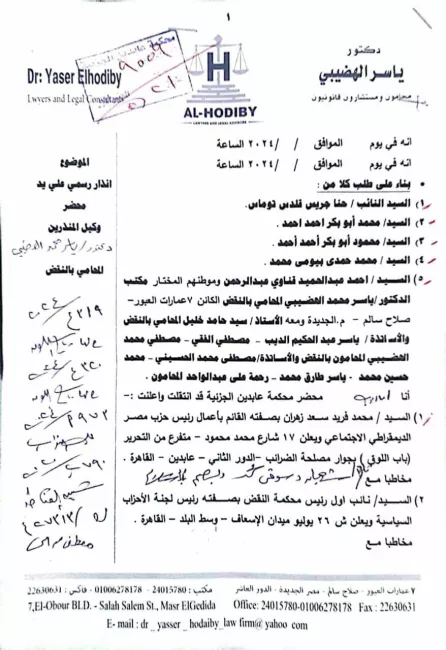 ١
دكتور
ياسر الهضيبي
محامون ومستشارون قانونيون
H
AL-HODIBY
LAWYERS AND LEGAL ADVISORS
Dr: Yaser Elhodiby
Lwyers and Legal Consultants
محكمة عابدين الجزئية
انه في يوم الموافق / / ٢٠٢٤ الساعة
انه في يوم الموافق / / ٢٠٢٤ الساعة
الموضوع
انذار رسمي علي يد
محضر
وكيل المنذرين
المحامي بالنقض
بناء على طلب كلا من :
١) السيد النائب / حنا جريس قلدس توماس.
٢) السيد/ محمد أبو بكر احمد احمد .
٣) السيد / محمود أبو بكر أحمد أحمد.
٤) السيد / محمد حمدى بيومى محمد.
٥) السيد / احمد عبدالحميد قناوي عبدالرحمن وموطنهم المختار مكتب
الدكتور/ياسر محمد الهضيبي المحامي بالنقض الكائن ٧عمارات العبور-
صلاح سالم – م.الجديدة ومعه الأستاذ/ سيد حامد خليل المحامي بالنقض
والأساتذة/ ياسر عبد الحكيم الديب – مصطفي الفقي – مصطفي محمد
الهضيبي المحامون بالنقض والأساتذة/مصطفي محمد الحسيني – محمد
حسين محمد – ياسر طارق محمد – رحمة على عبدالواحد المحامون .
أنا محضر محكمة عابدين الجزئية قد انتقلت واعلنت :-
١) السيد / محمد فريد سعد زهران بصفته القائم بأعمال رئيس حزب مصر
الديمقراطي الاجتماعي ويعلن ١٧ شارع محمد محمود – متفرع من التحرير
(باب اللوق) بجوار مصلحة الضرائب –الدور الثاني – عابدين – القاهرة .
مخاطبا مع
٢) السيد/ نائب اول رئيس محكمة النقض بصفته رئيس لجنة الأحزاب
السياسية ويعلن ش ٢٦ يوليو ميدان الإسعاف – وسط البلد – القاهرة .
مخاطبا مع
٧ عمارات العبور - صلاح سالم - مصر الجديدة - الدور العاشر مكتب : 24015780 - 01006278178 - فاكس : 22630631
7,El-Obour BLD. - Salah Salem St., Masr ElGedida Office: 24015780-01006278178 Fax : 22630631
E- mail : dr _ yasser _ hodaiby_law firm@ yahoo com